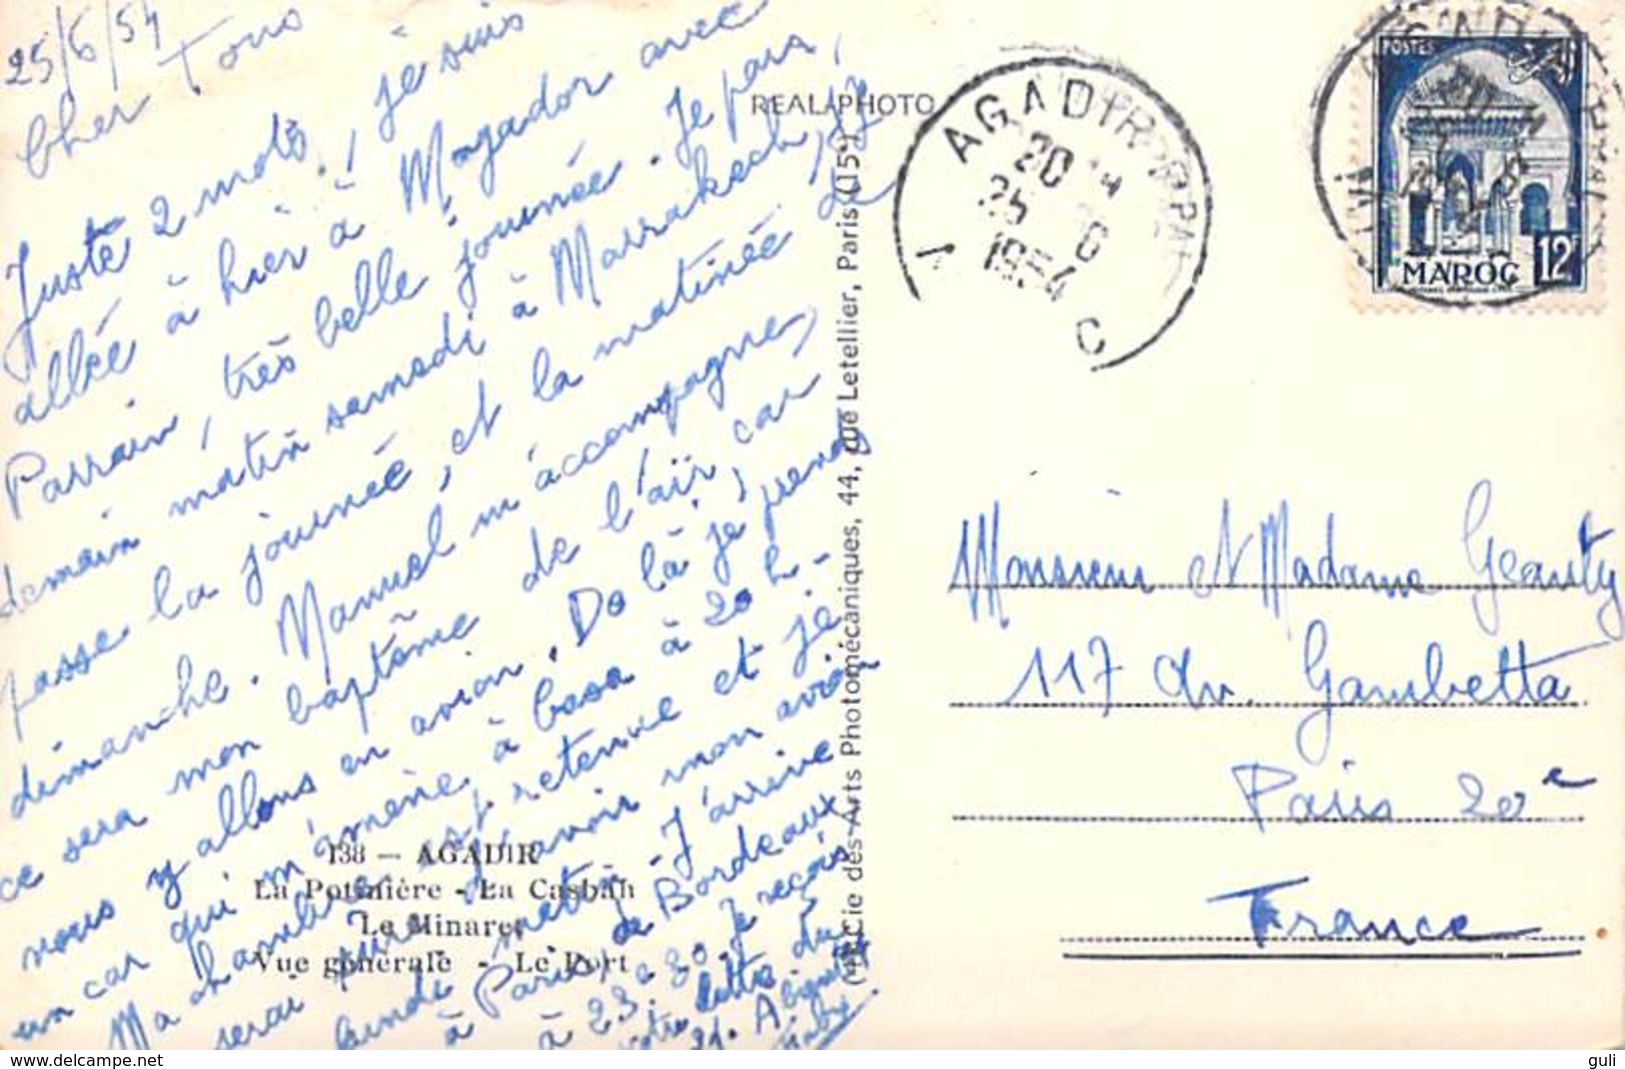 25/6/54
Cher Tous
Juste 2 mots, je suis
allée à hier à Mogador avec
Parrain, très belle journée. Je pars,
demain matin samedi à Marrakech, j'y
passe la journée, et la matinée de
dimanche. Manuel m'accompagne,
ce sera mon baptême de l'air, car
nous y allons en avion. De là je prends
un car qui m'amène à Casa à 20 h-
Ma chambre est retenue et je
serai sûre d'avoir mon avion
lundi matin. J'arrive
à Paris, de Bordeaux
à 23 h 30. Je reçois
votre lettre du
21. A bientôt
138 — AGADIR
La Potinière - La Casbah
Le Minaret
Vue générale - Le Port
REAL PHOTO
Cie des Arts Photomécaniques, 44, rue Letellier, Paris (15e)
AGADIR PPAL
20 H
25 6
1954
POSTES
MAROC 12F
Monsieur et Madame Geanty
117 Av. Gambetta
Paris 20e
France
guli